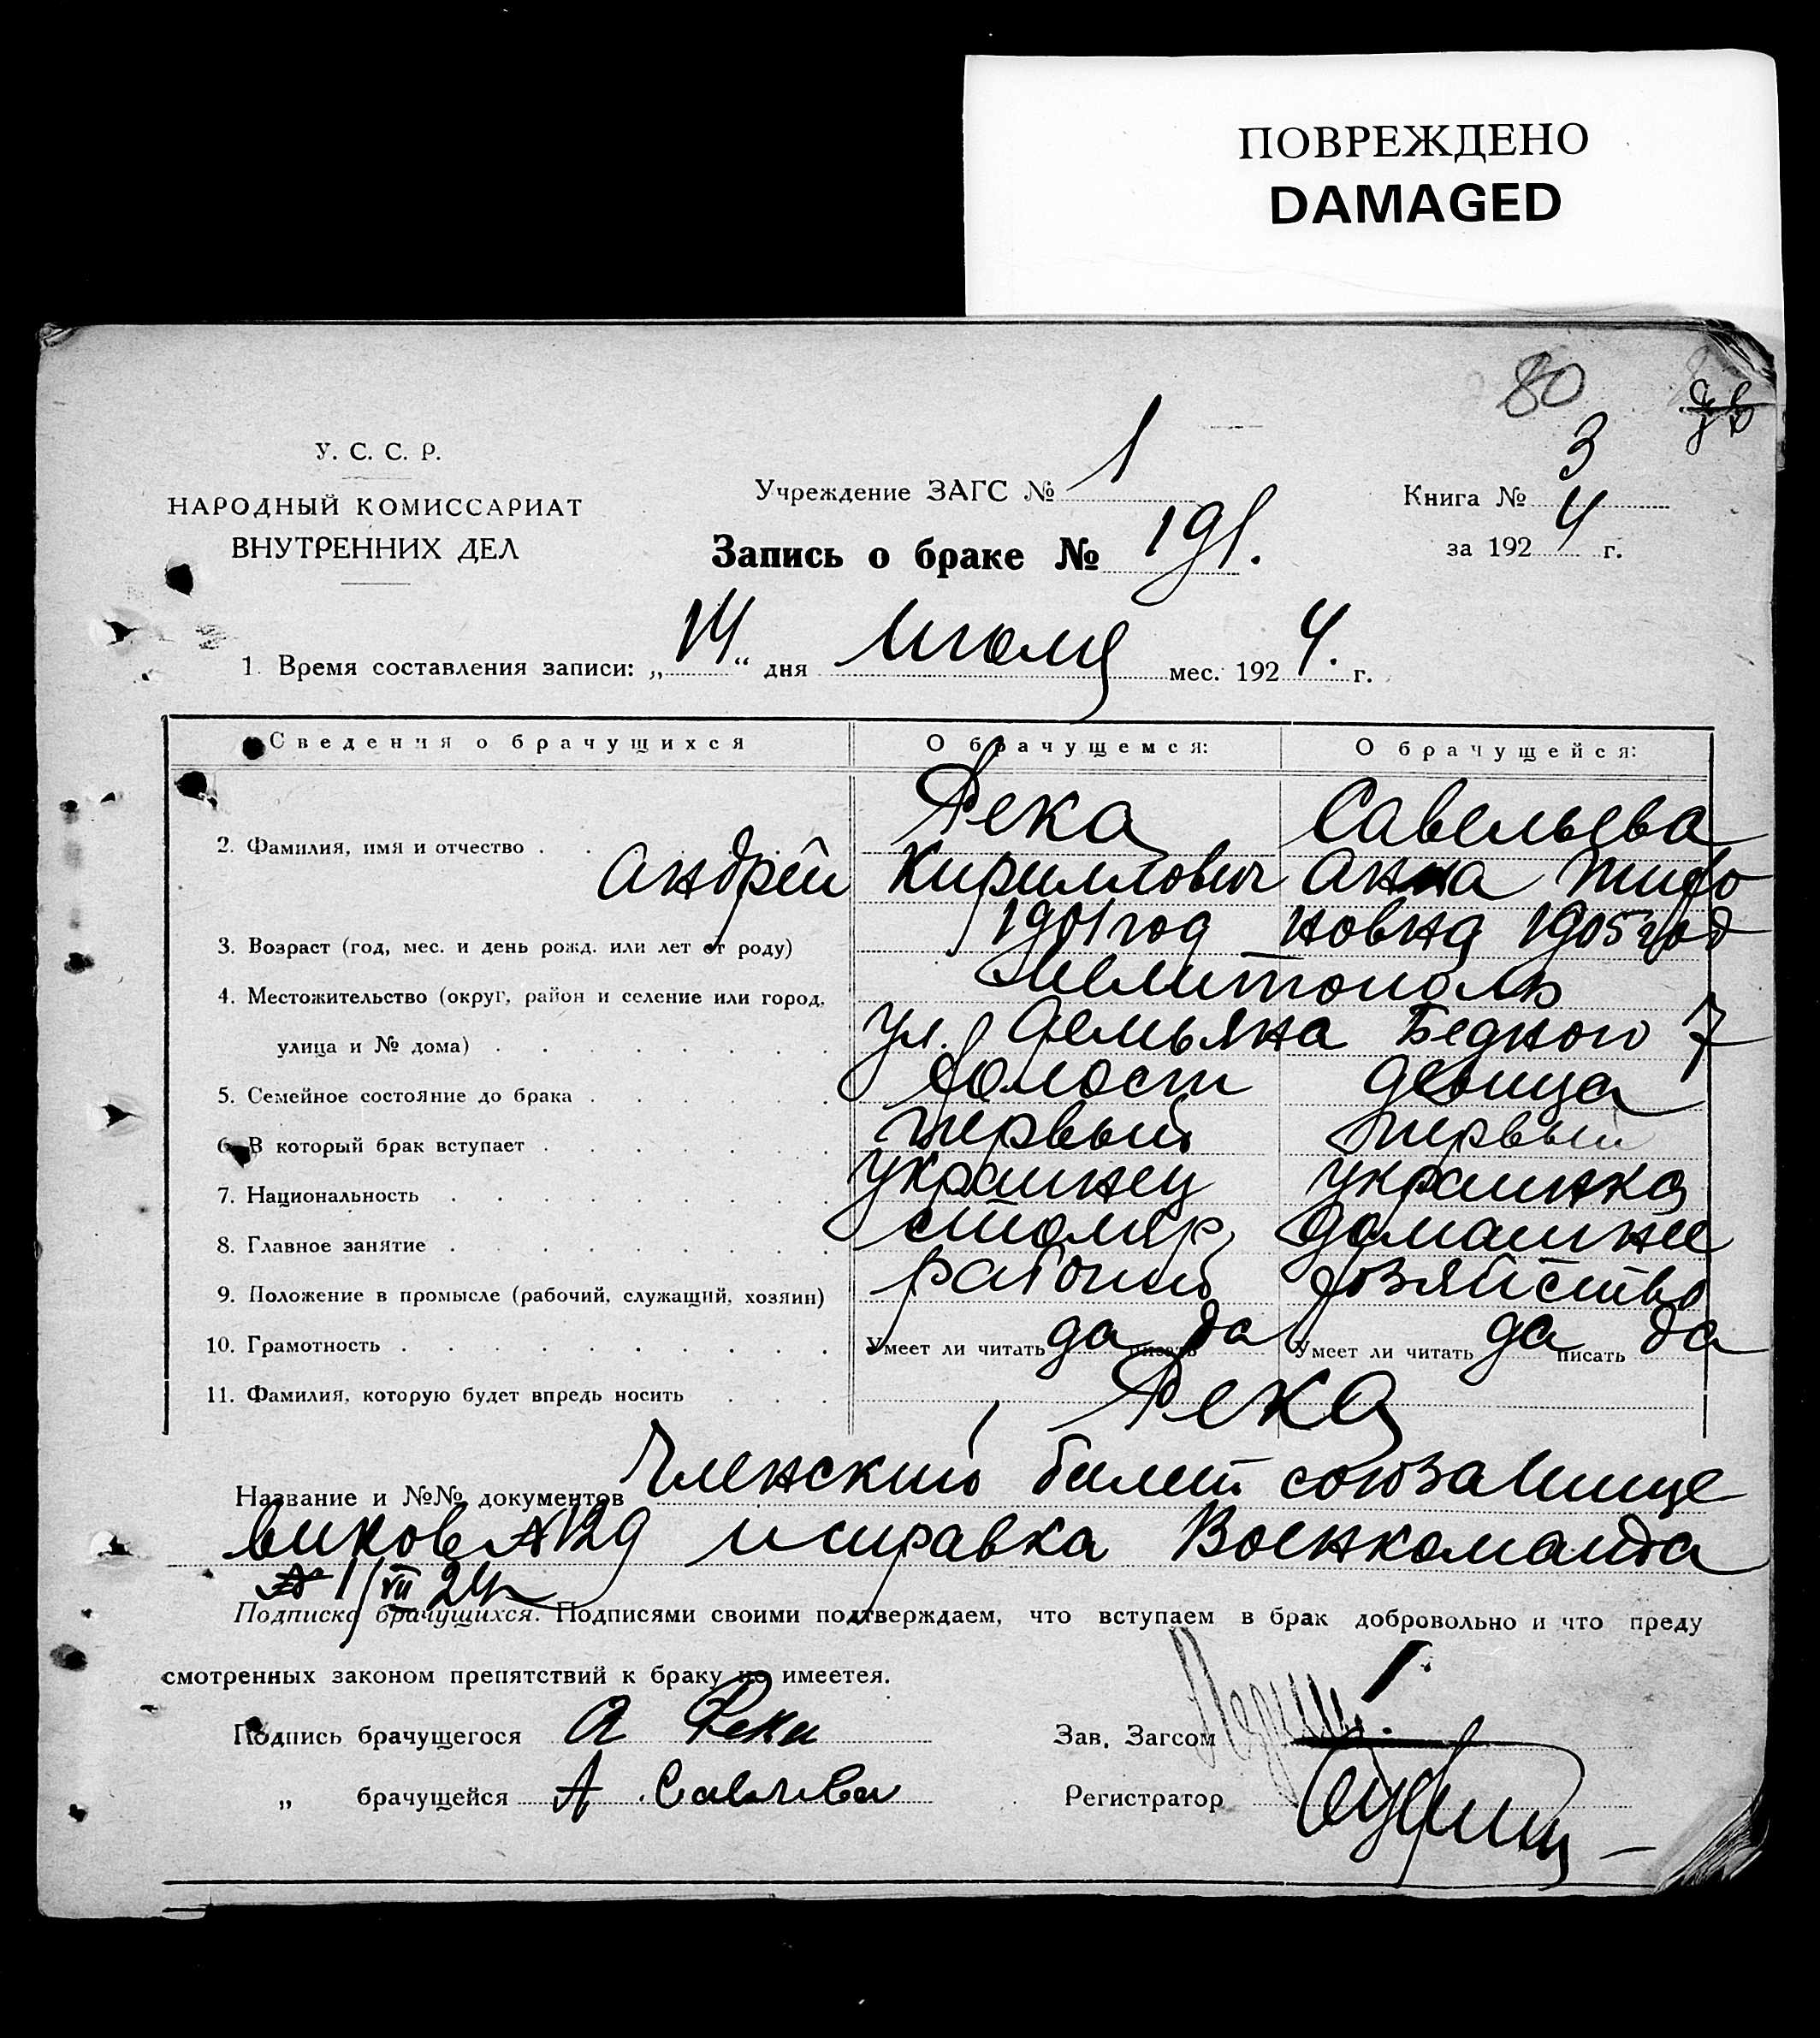 ПОВРЕЖДЕНО
DAMAGED
80
У. С. С. Р.
НАРОДНЫЙ КОМИССАРИАТ
ВНУТРЕННИХ ДЕЛ
Учреждение ЗАГС № 1
Книга № 3
Запись о браке № 191.
за 1924 г.
1. Время составления записи: „14“ дня Июля мес. 1924. г.
Сведения о брачущихся О брачущемся: О брачущейся:
Река Савельева
2. Фамилия, имя и отчество . . .
Андрей Кириллович Анна Тифо
1901 год новна 1905 год
3. Возраст (год, мес. и день рожд. или лет от роду)
Мелитополь
4. Местожительство (округ, район и селение или город,
ул. Демьяна Бедного 7
улица и № дома) . . . . . . . .
5. Семейное состояние до брака . . . . . . холост девица
6. В который брак вступает . . . . . . . первый первый
7. Национальность . . . . . . . . . украинец украинка
8. Главное занятие . . . . . . . . . столяр домашнее
9. Положение в промысле (рабочий, служащий, хозяин) рабочий хозяйство
10. Грамотность . . . . . . . . . . Умеет ли читать да писать да Умеет ли читать да писать да
11. Фамилия, которую будет впредь носить . . . Река
Название и №№ документов Членский билет союза Пище
виков №129 и справка Военкомата
№ 1/VII 24
Подписка брачущихся. Подписями своими подтверждаем, что вступаем в брак добровольно и что преду
смотренных законом препятствий к браку не имеетея.
Подпись брачущегося А Река Зав. Загсом
„ брачущейся А Савелева Регистратор